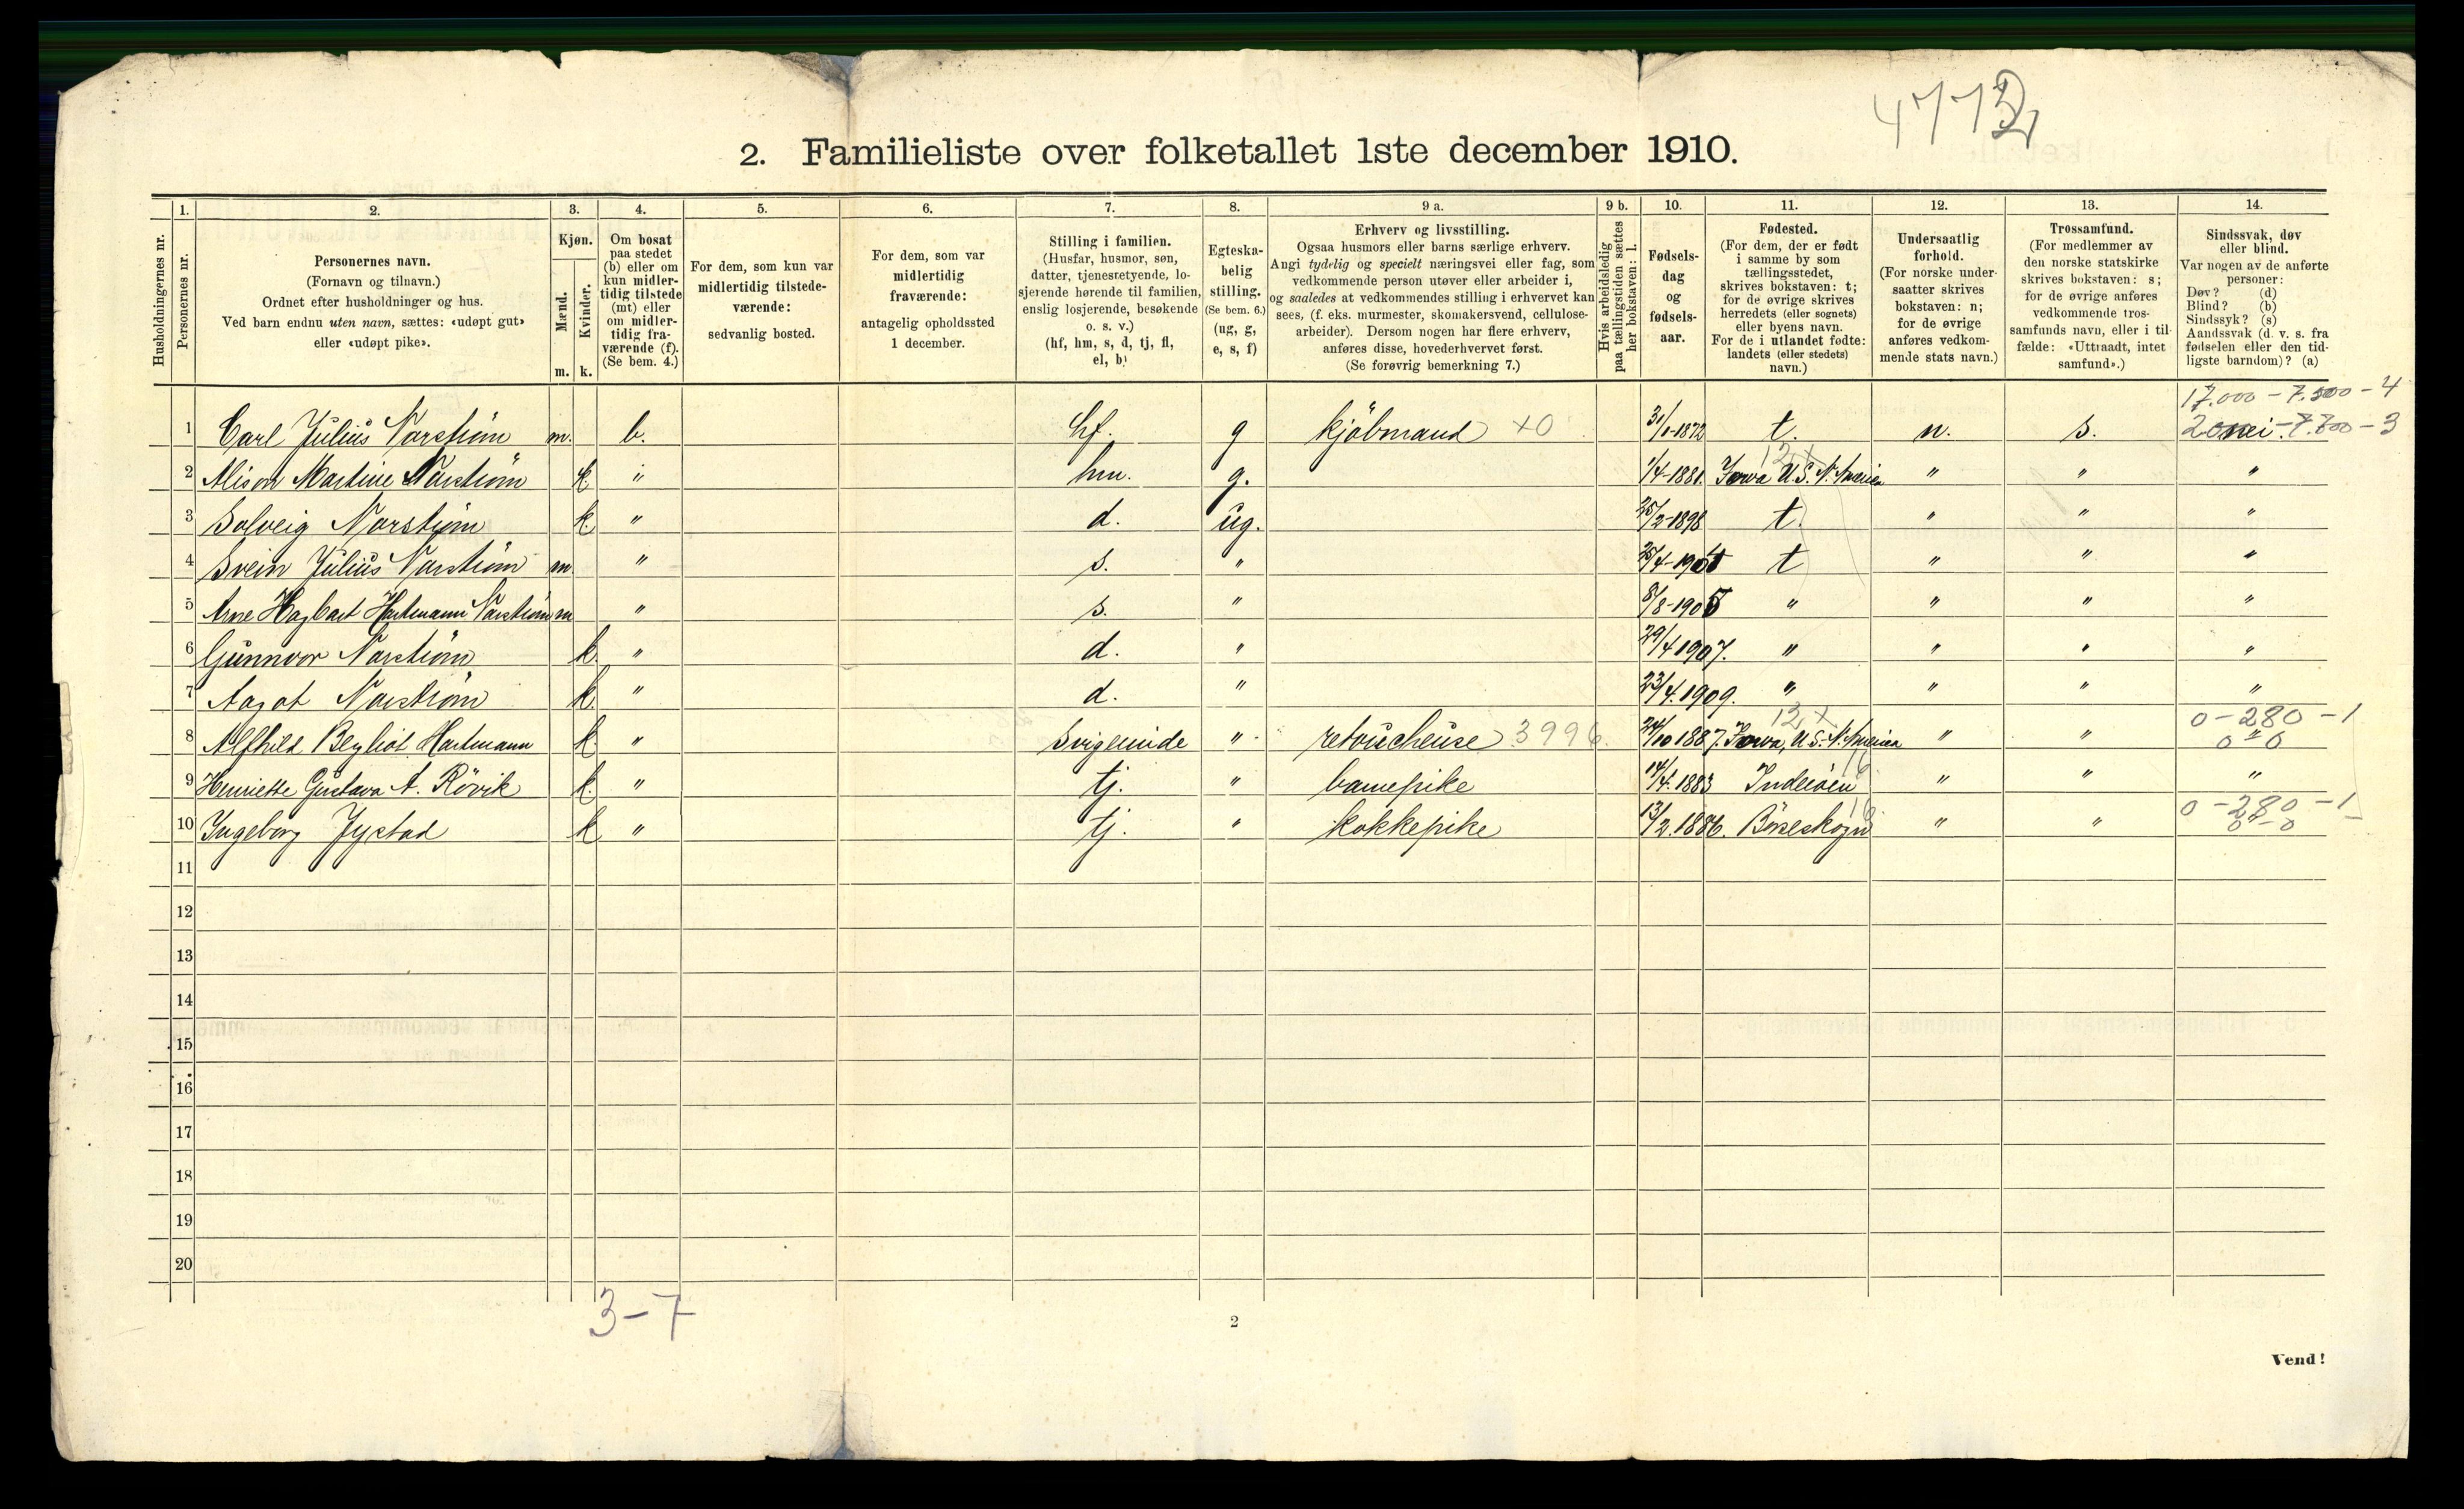 4772
2. Familieliste over folketallet 1ste december 1910.
1. 2. 3. 4. 5. 6. 7. 8. 9 a. 9 b. 10. 11. 12. 13. 14.
Husholdningernes nr.
Personernes nr.
Personernes navn.
(Fornavn og tilnavn.)
Ordnet efter husholdninger og hus.
Ved barn endnu uten navn, sættes: «udøpt gut»
eller «udøpt pike».
Kjøn.
Mænd.
Kvinder.
m. k.
Om bosat
paa stedet
(b) eller om
kun midler-
tidig tilstede
(mt) eller
om midler-
tidig fra-
værende (f).
(Se bem. 4.)
For dem, som kun var
midlertidig tilstede-
værende:
sedvanlig bosted.
For dem, som var
midlertidig
fraværende:
antagelig opholdssted
1 december.
Stilling i familien.
(Husfar, husmor, søn,
datter, tjenestetyende, lo-
sjerende hørende til familien,
enslig losjerende, besøkende
o. s. v.)
(hf, hm, s, d, tj, fl,
el, b)
Egteska-
belig
stilling.
(Se bem. 6.)
(ug, g,
e, s, f)
Erhverv og livsstilling.
Ogsaa husmors eller barns særlige erhverv.
Angi tydelig og specielt næringsvei eller fag, som
vedkommende person utøver eller arbeider i,
og saaledes at vedkommendes stilling i erhvervet kan
sees, (f. eks. murmester, skomakersvend, cellulose-
arbeider). Dersom nogen har flere erhverv,
anføres disse, hovederhvervet først.
(Se forøvrig bemerkning 7.)
Hvis arbeidsledig
paa tællingstiden sættes
her bokstaven: l.
Fødsels-
dag
og
fødsels-
aar.
Fødested.
(For dem, der er født
i samme by som
tællingsstedet,
skrives bokstaven: t;
for de øvrige skrives
herredets (eller sognets)
eller byens navn.
For de i utlandet fødte:
landets (eller stedets)
navn.)
Undersaatlig
forhold.
(For norske under-
saatter skrives
bokstaven: n;
for de øvrige
anføres vedkom-
mende stats navn.)
Trossamfund.
(For medlemmer av
den norske statskirke
skrives bokstaven: s;
for de øvrige anføres
vedkommende tros-
samfunds navn, eller i til-
fælde: «Uttraadt, intet
samfund».)
Sindssvak, døv
eller blind.
Var nogen av de anførte
personer:
Døv? (d)
Blind? (b)
Sindssyk? (s)
Aandssvak (d. v. s. fra
fødselen eller den tid-
ligste barndom)? (a)
17.000 - 7.500 - 4
1 Carl Julius Narström m. b. hf. g kjöbmand +0 31/1-1872 t. n. s. nei. 7.800 - 3
12 +
2 Alison Martine Narström k " hm. g. 1/4-1881. Iowa U.S. N. America " " "
3 Solveig Narström k. " d. ug. 25/2-1898 t. " " "
4 Svein Julius Narström m " s. " 25/4-1904 t " " "
5 Arne Hagbart Hartmann Narström m " s. " 8/8-1905 " " " "
6 Gunnvor Narström k. " d. " 29/4 1907. " " " "
7 Aagot Narström k. " d. " 23/4.1909. " " " "
12 + 0 - 280 - 1
8 Alfhild Bergliot Hartmann k. " Svigerinde " retoucheuse 3996 24/10 1887. Iowa, U.S. N. America " " " 0 - 0
9 Henriette Gustava A. Rövik k. " tj. " barnepike 14/4.1883 Inderöen 16 " " "
0 - 280 - 1
10 Ingeborg Jystad k " tj. " kokkepike 13/2.1886. Börseskogn 16 " " 0 - 0
11
12
13
14
15
16
17
18
19
20
3-7
2
Vend!